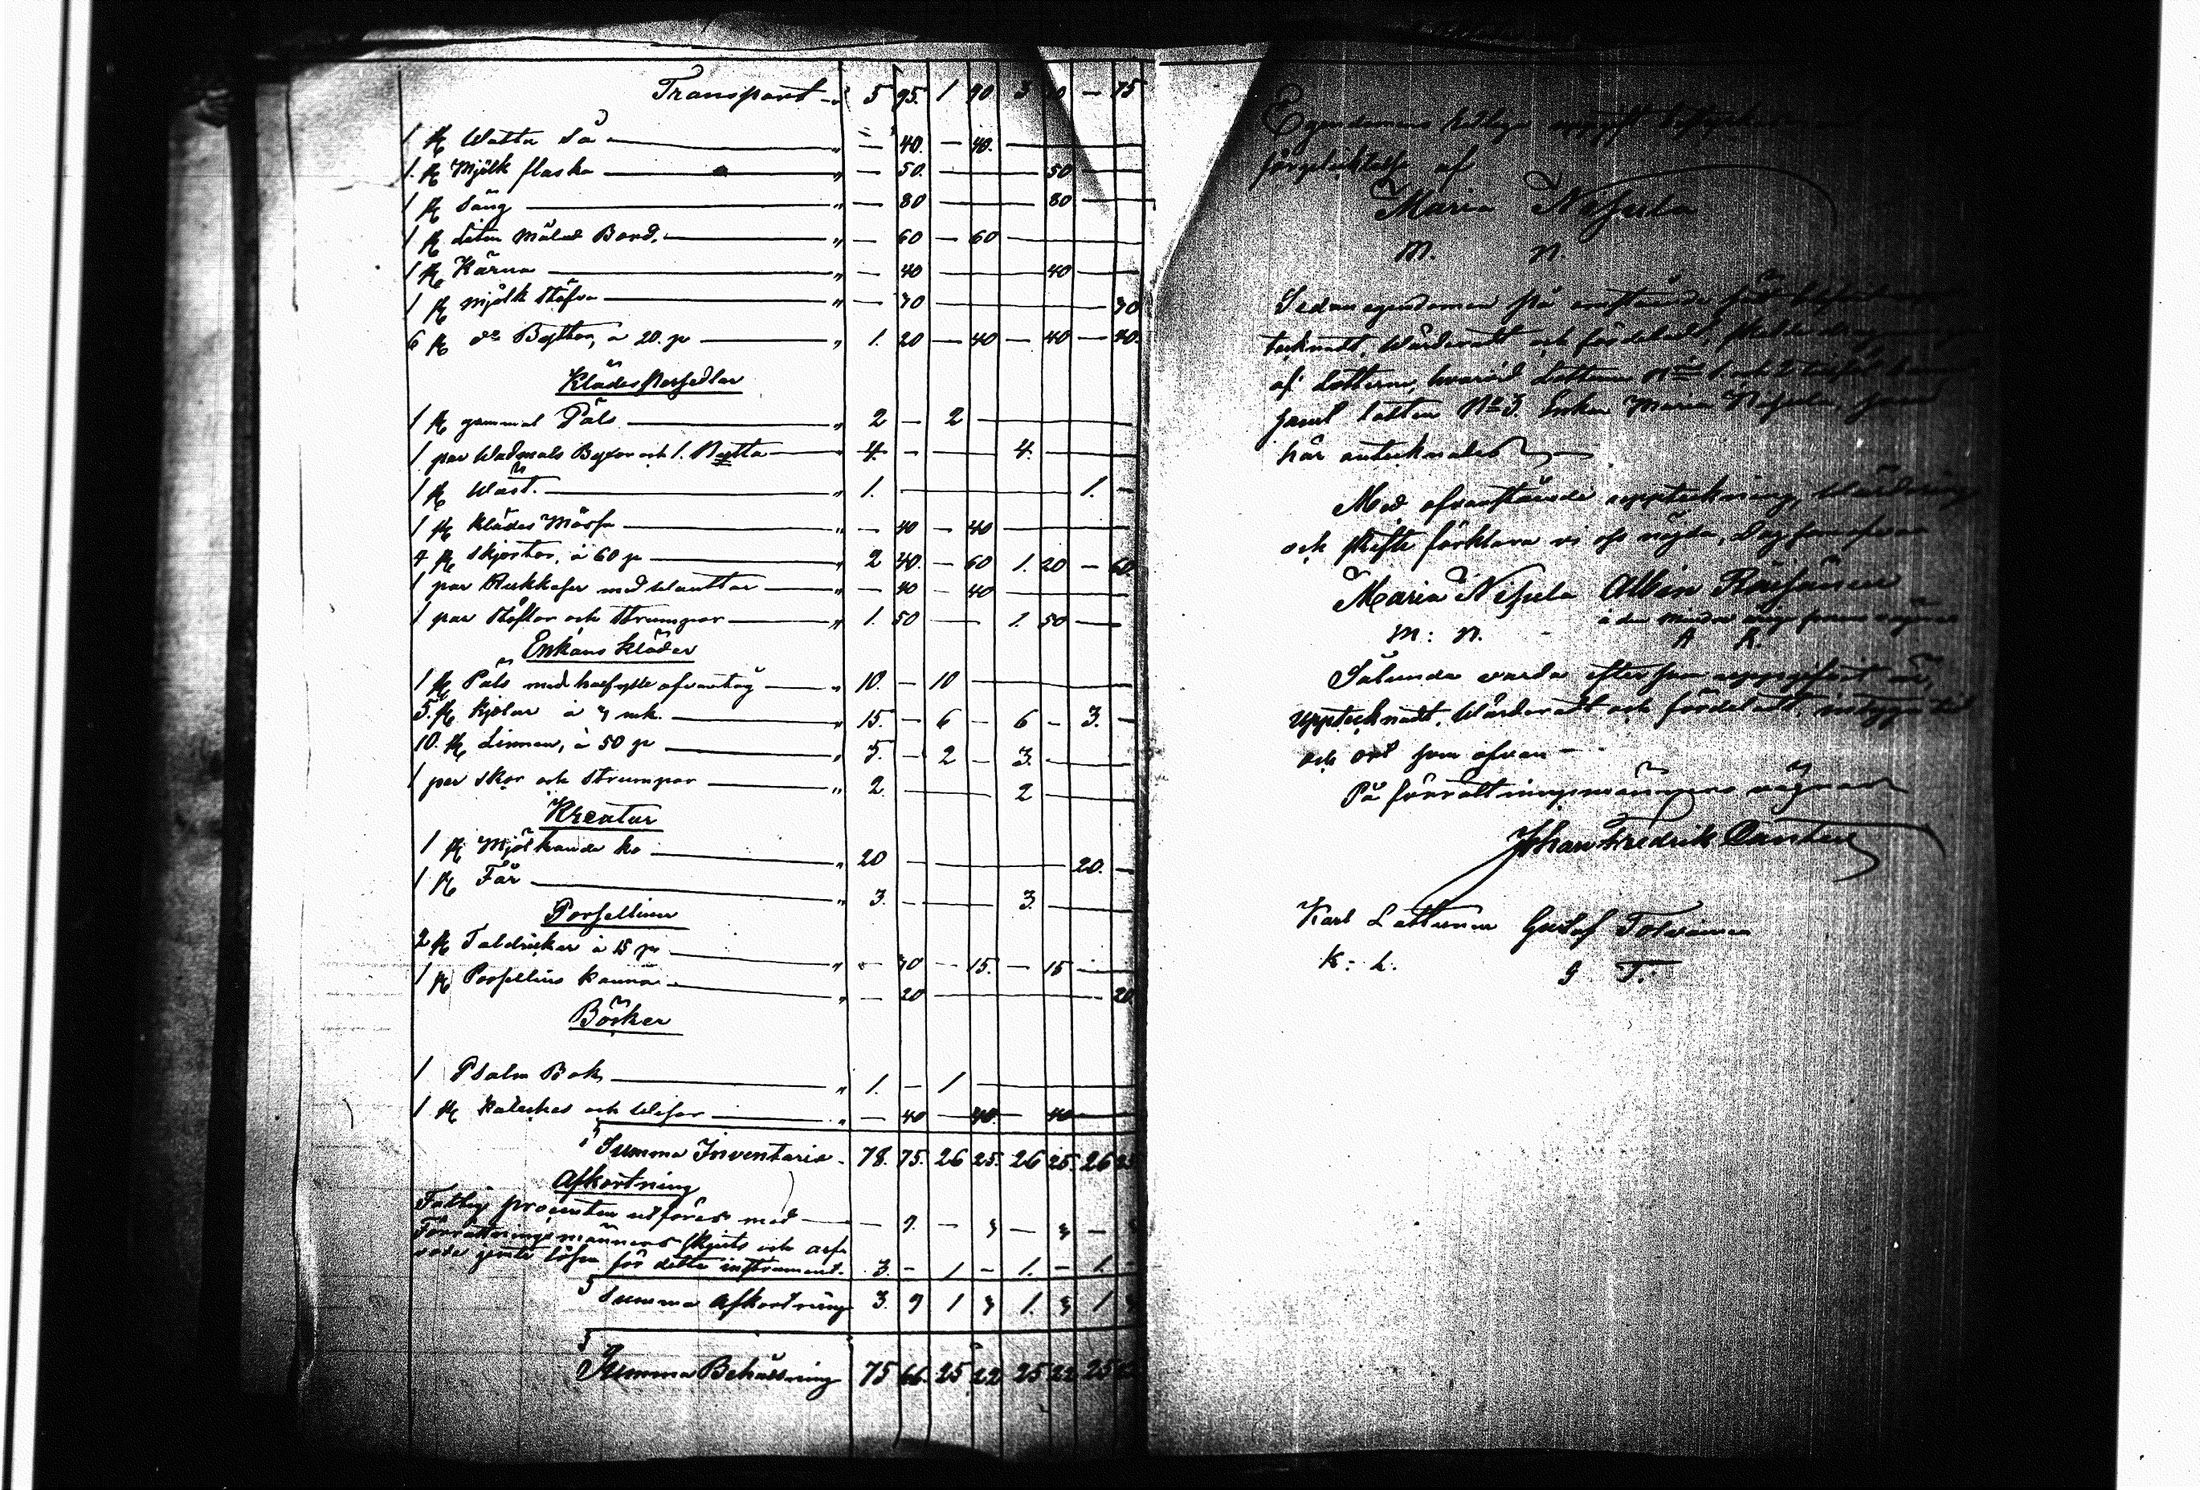 Transport 5 95. 1 90 3 — 75
1 st Watten Så " — 40. — 40.
1. st Mjölk flaska " — 50. — 50
1 st Säng " — 80 — 80
1 st Liten Målad Bord. " — 60 — 60
1 st Kärna " — 40 — 40
1 st Mjölk Stäfva " — 30 — 30
6 st do Byttor, à 20. p " 1. 20 — 40 — 40 — 40.
Klädespersedlar
1 st gammal Päls " 2 — 2
1 par Wadmals Byxor och 1. Rytta " 4. — — 4.
1 st Wäst. " 1. — 1. —
1 st Klädes Mössa " — 40 — 40
4 st Skjortor, à 60 p " 2 40. — 60 1. 20 — 60
1 par Rukkaser med Wanttar " — 40 — 40
1 par Stöflor och Strumpor " 1. 50 — 1. 50 —
Enkans Kläder
1 st Päls med halfylle ofvantyg " 10. — 10
5. st Kjolar à 3 mk. " 15. — 6 — 6 — 3. —
10. st Linnen, à 50 p " 5. — 2 — 3.
1 par Skor och Strumpor " 2. — 2
Kreatur
1 st Mjölkande ko " 20 — 20. —
1 st Får " 3. — 3.
Porsellin
2 st Taldrickar à 15 p " — 30 — 15. — 15
1 st Porsellins kanna " — 20 — 20.
Böcker
1 Psalm Bok " 1. — 1
1 st Kateches och " — 40 — 40. — 40
Summa Inventarie 78. 75. 26 25. 26 25. 26 25
Afkortning
Fattig procenten utföres med — 9. — 3 — 3 — 3
Förrättningsmännens skjuts och arf-
vode jemte lösen för detta instrument. 3. — 1 — 1. — 1. —
Summa Afkortning 3. 9 1 3 1. 3 1 3
Summa Behållning 75 66. 25 22 25 22 25 22
Egendomen
af
Maria Nisula
M. N.
Sedan egendomen på
tecknadt, Wärderadt och fördelad,
af Lotterne, hvarvid Lotterne No 1 och 2
samt Lotten No 3. Enkan Maria Nisula, som
här antecknades
Med ofvanstående uppteckning, Wärdering
och skifte förklara vi oss nöjda, Dag som ofvan
Maria Nisula Albin Räisänen
M: N. A R.
Sålunda vara efter som uppgifvit är,
upptecknadt, Wärderadt och fördeladt, intyga tid
och ort som ofvan —
På förrättningsmännens vägnar
Johan Fredrik
Karl Lattunen Gustaf Toivainen
K: L. G T.